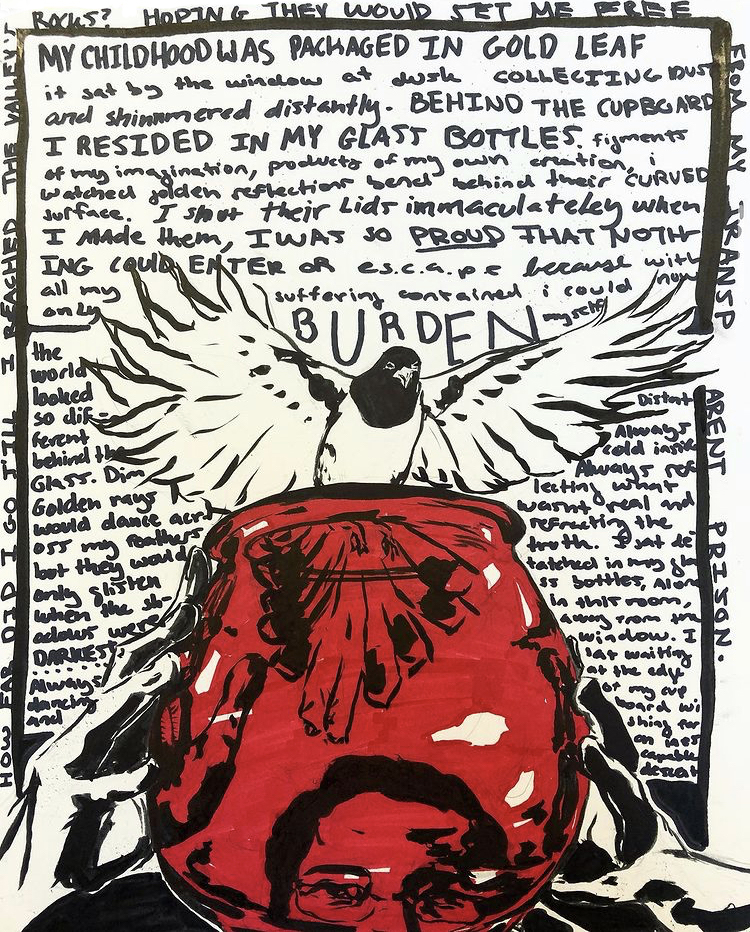 HOW FAR DID I GO TILL I REACHED THE VALLEYS
ROCKS? HOPING THEY WOULD SET ME FREE
FROM MY TRANSP
ARENT PRISON.
MY CHILDHOOD WAS PACKAGED IN GOLD LEAF
it sat by the window at dusk COLLECTING DUST
and shimmered distantly. BEHIND THE CUPBOARD
I RESIDED IN MY GLASS BOTTLES. figments
of my imagination, products of my own creation, i
watched golden reflections bend behind their CURVED
surface. I shut their Lids immaculateley when
I MADE them, I WAS SO PROUD THAT NOTH
ING COULD ENTER OR e.s.c.a.p.e because with
all my suffering contained i could now
only BURDEN myself
the
world
looked
so dif-
ferent
behind the
Glass. Dim
Golden rays
would dance acr
oss my feathers
but they would
only glisten
when the sh-
adows were
DARKEST.
Always
dancing
and
Distant
Always
cold inside
Always ref
lecting what
wasnt real and
refracting the
truth. I sat de
tatched in my gla
ss bottles, alone
in this room,
away from the
window. I
sat waiting
at the edge
of my cup
board wi
shing for
an ines
capable
descent